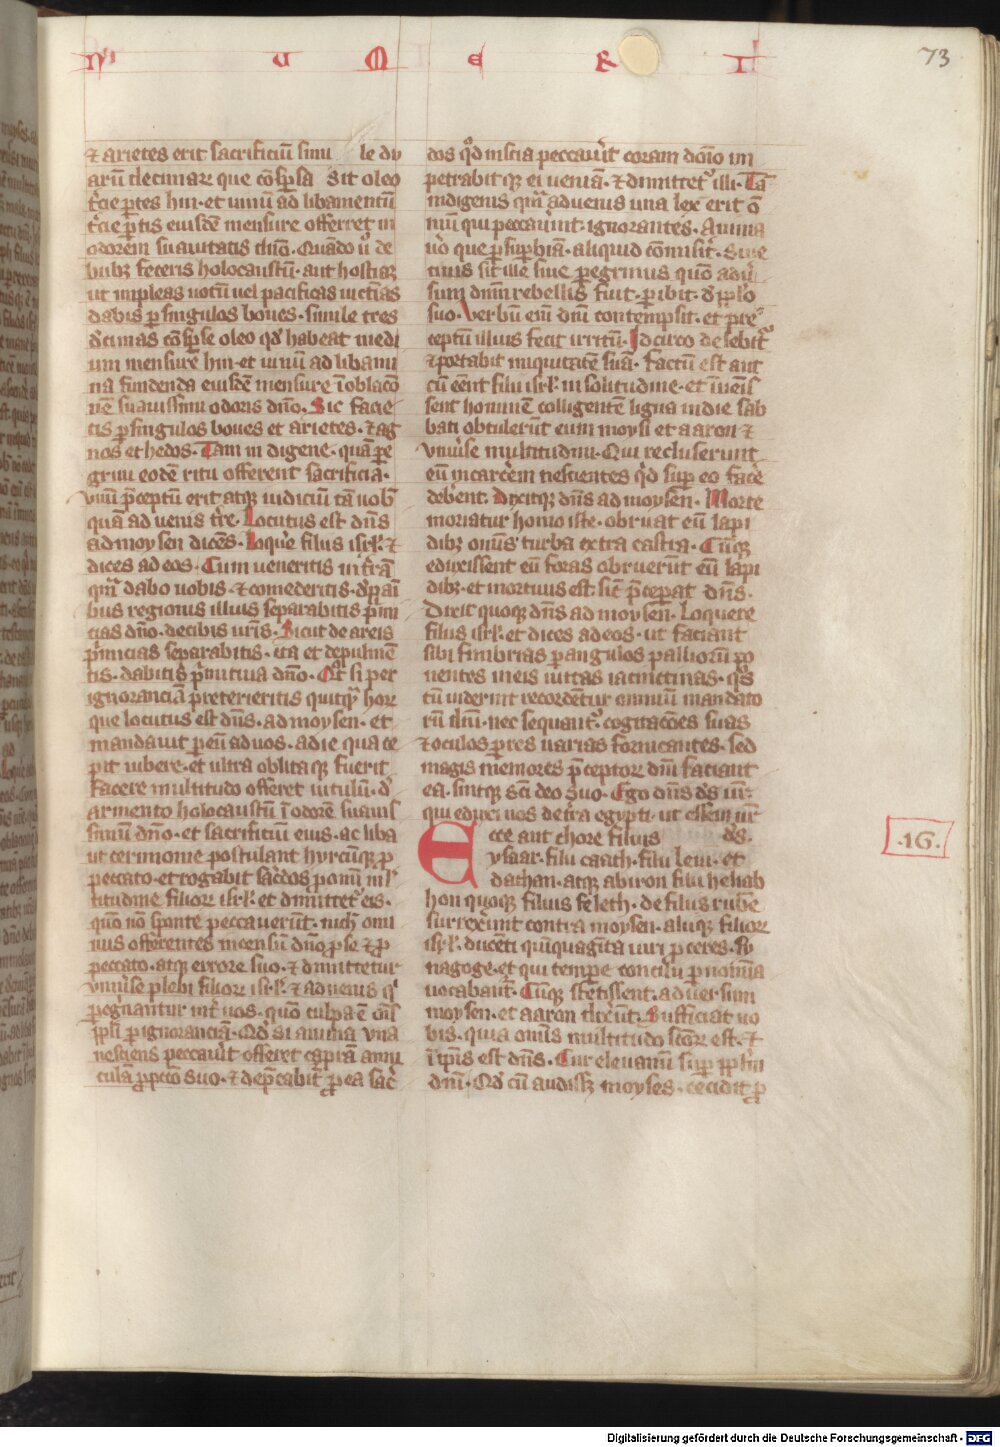 N U M E R I
73
⁊ arietes erit sacrificiū simi le du
arū decimarꝝ que cōsp̄sa sit oleo
t̄cie ꝑtes hin · et uinū ad libamentū
t̄cie ꝑtis eiusdē mensure offerret in
odorem suauitatis dn̄o · Quādo ū de
bubꝫ feceris holocaustū · aut hostiaꝫ
ut impleas uotū uel pacificas uictīas
dabis ꝑ singulos boues · simile tres
d̄cimas cōsꝑse oleo qd̄ habeat medi
um mensure hin · et uinū ad libami
na fundenda eiusdē mensure ī oblacō
nē suauissimi odoris dn̄o · Sic facie
tis ꝑ singulos boues et arietes · ⁊ ag
nos et hedos · Tam in digene · quā ꝑe
grini eodē ritu offerent sacrificia ·
vnū p̄ceptū erit atqꝫ iudiciū tā uob̄
quā ad uenis tr̄e · Locutus est dn̄s
ad moysen dicēs · Loqr̄e filijs isrl̄ · ⁊
dices ad eos · Cum ueneritis in t̄rā
qm̄ dabo uobis · ⁊ comederitis · d̄ pai
bus regionis illius separabitis p̄mi
cias dn̄o · de cibis ur̄is · Sicut de areis
p̄micias separabitis · ita et de pulmē
tis · dabitis p̄mitiua dn̄o · Qd̄ si per
ignoranciā preterieritis quitqꝫ horꝝ
que locutus est dn̄s · ad moysen · et
mandauit ꝑ eū ad uos · a die qua ce
pit iubere · et ultra oblita qꝫ fuerit
facere multitudo offeret uitulū · d̄
armento holocaustū ī odorē suauis
simū dn̄o · et sacrificiū eius · ac liba
ut cerimonie postulant hyrcūqꝫ ꝓ
peccato · et rogabit sac̄dos ꝓ omī ml̄
titudine filiorꝝ isrl̄ · et dimittet̄ eis ·
quō nō sponte peccauerūt · nichꝰ omi
nus offerentes incensū dn̄o ꝓ se ⁊ ꝓ
peccato · atqꝫ errore suo · ⁊ dimittetur
vniuse plebi filiorꝝ isrl̄ · ⁊ aduenis qͥ
peg̊nantur int̄ uos · quō culpa ē oīs
ppl̄i ꝑ ignoranciā · Qd̄ si anima vna
nesciens peccaūit offeret capram anni
culā ꝓ pctō suo · ⁊ dep̄cabit̄ ꝓ ea sac̄
dos qd̄ inscia peccaūit coram dn̄o im
petrabitqꝫ ei ueniā · ⁊ dimittet̄ illi · Tā
indigenis qm̄ aduenis una lex erit ō
niū qui peccaūint · ignorantes · Anima
uō que ꝑ suꝑbiā · aliquid cōmisit̄ · Siue
ciuis sit ille siue ꝑegrinus quō aduˀ
sum dnm̄ rebellis fuit · ꝑibit · d̄ ppl̄o
suo · Verbū eīm dnī contempsit · et pre
ceptū illius fecit irritū · Idcirco delebit̄
⁊ portabit iniquitatē suā · Factū est aut
cū eēnt filij isrl̄ in solitudine · et īuenis
sent hominē colligentē ligna in die sab
bati obtulerūt eum moysi et aaron ⁊
vniūse multitudini · Qui recluserunt
eū in carc̄em nescientes qd̄ suꝑ eo face
deb̄ent · Dixitqꝫ dn̄s ad moysen · Morte
moriatur homo iste · obruat eū lapi
dibꝫ om̄is turba extra castra · Cūqꝫ
eduxissent eū foras obruerūt eū lapi
dibꝫ · et mortuus est · sic̄ p̄ceꝑat dn̄s ·
Dixit quoqꝫ dn̄s ad moysen · Loquere
filijs isrl̄ · et dices ad eos · ut faciant
sibi fimbrias ꝑ angulos palliorū po
nentes in eis uittas iacinctinas · qͣs
cū uiderint recordētur omniū mandato
rū dn̄i · nec sequant̄ · cogitacōes suas
⁊ oculos ꝑ res uarias fornicantes · sed
magis memores p̄ceptorꝝ dn̄i faciant
ea · sintqꝫ sc̄i deo suo · Ego dn̄s ds̄ ur̄
qui eduxi uos de tr̄a egypti · ut essem ur̄
Ecce aut chore filius ds̄ ·
ysaar · filij caath · filij leui · et
dathan · atqꝫ abiron filij heliab
hon quoqꝫ filius feleth · de filijs rubē
surrexrīnt contra moysen · alijqꝫ filiorꝝ
isrl̄ · ducēti quīquagīta uiri ꝓceres · sy
nagoge · et qui tempre concilij ꝑ nomīa
uocabant̄ · Cūqꝫ stetissent · aduersum
moysen · et aaron dixerūt · Sufficiat uo
bis · quia om̄is multitudo sc̄orꝝ est · ⁊
ī ip̄is est dn̄s · Cur eleuamī suꝑ ppl̄m
dnī · Qd̄ cū audissꝫ moyses · cecidit ꝓ
· 16 ·
Digitalisierung gefördert durch die Deutsche Forschungsgemeinschaft - DFG